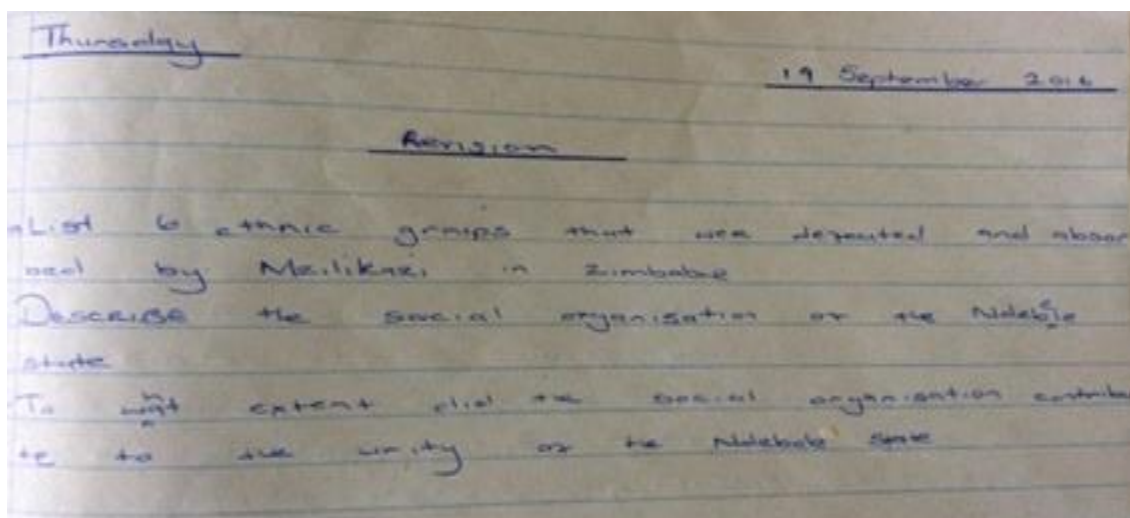 Thursday
19 September 2016
Revision
List 6 ethnic groups that wea defeated and absor
bed by Mzilikazi in Zimbabwe
DESCRIBE the social organisation of the Ndebele
state
To what extent did the social organisation contribu
te to the unity of the Ndebele state